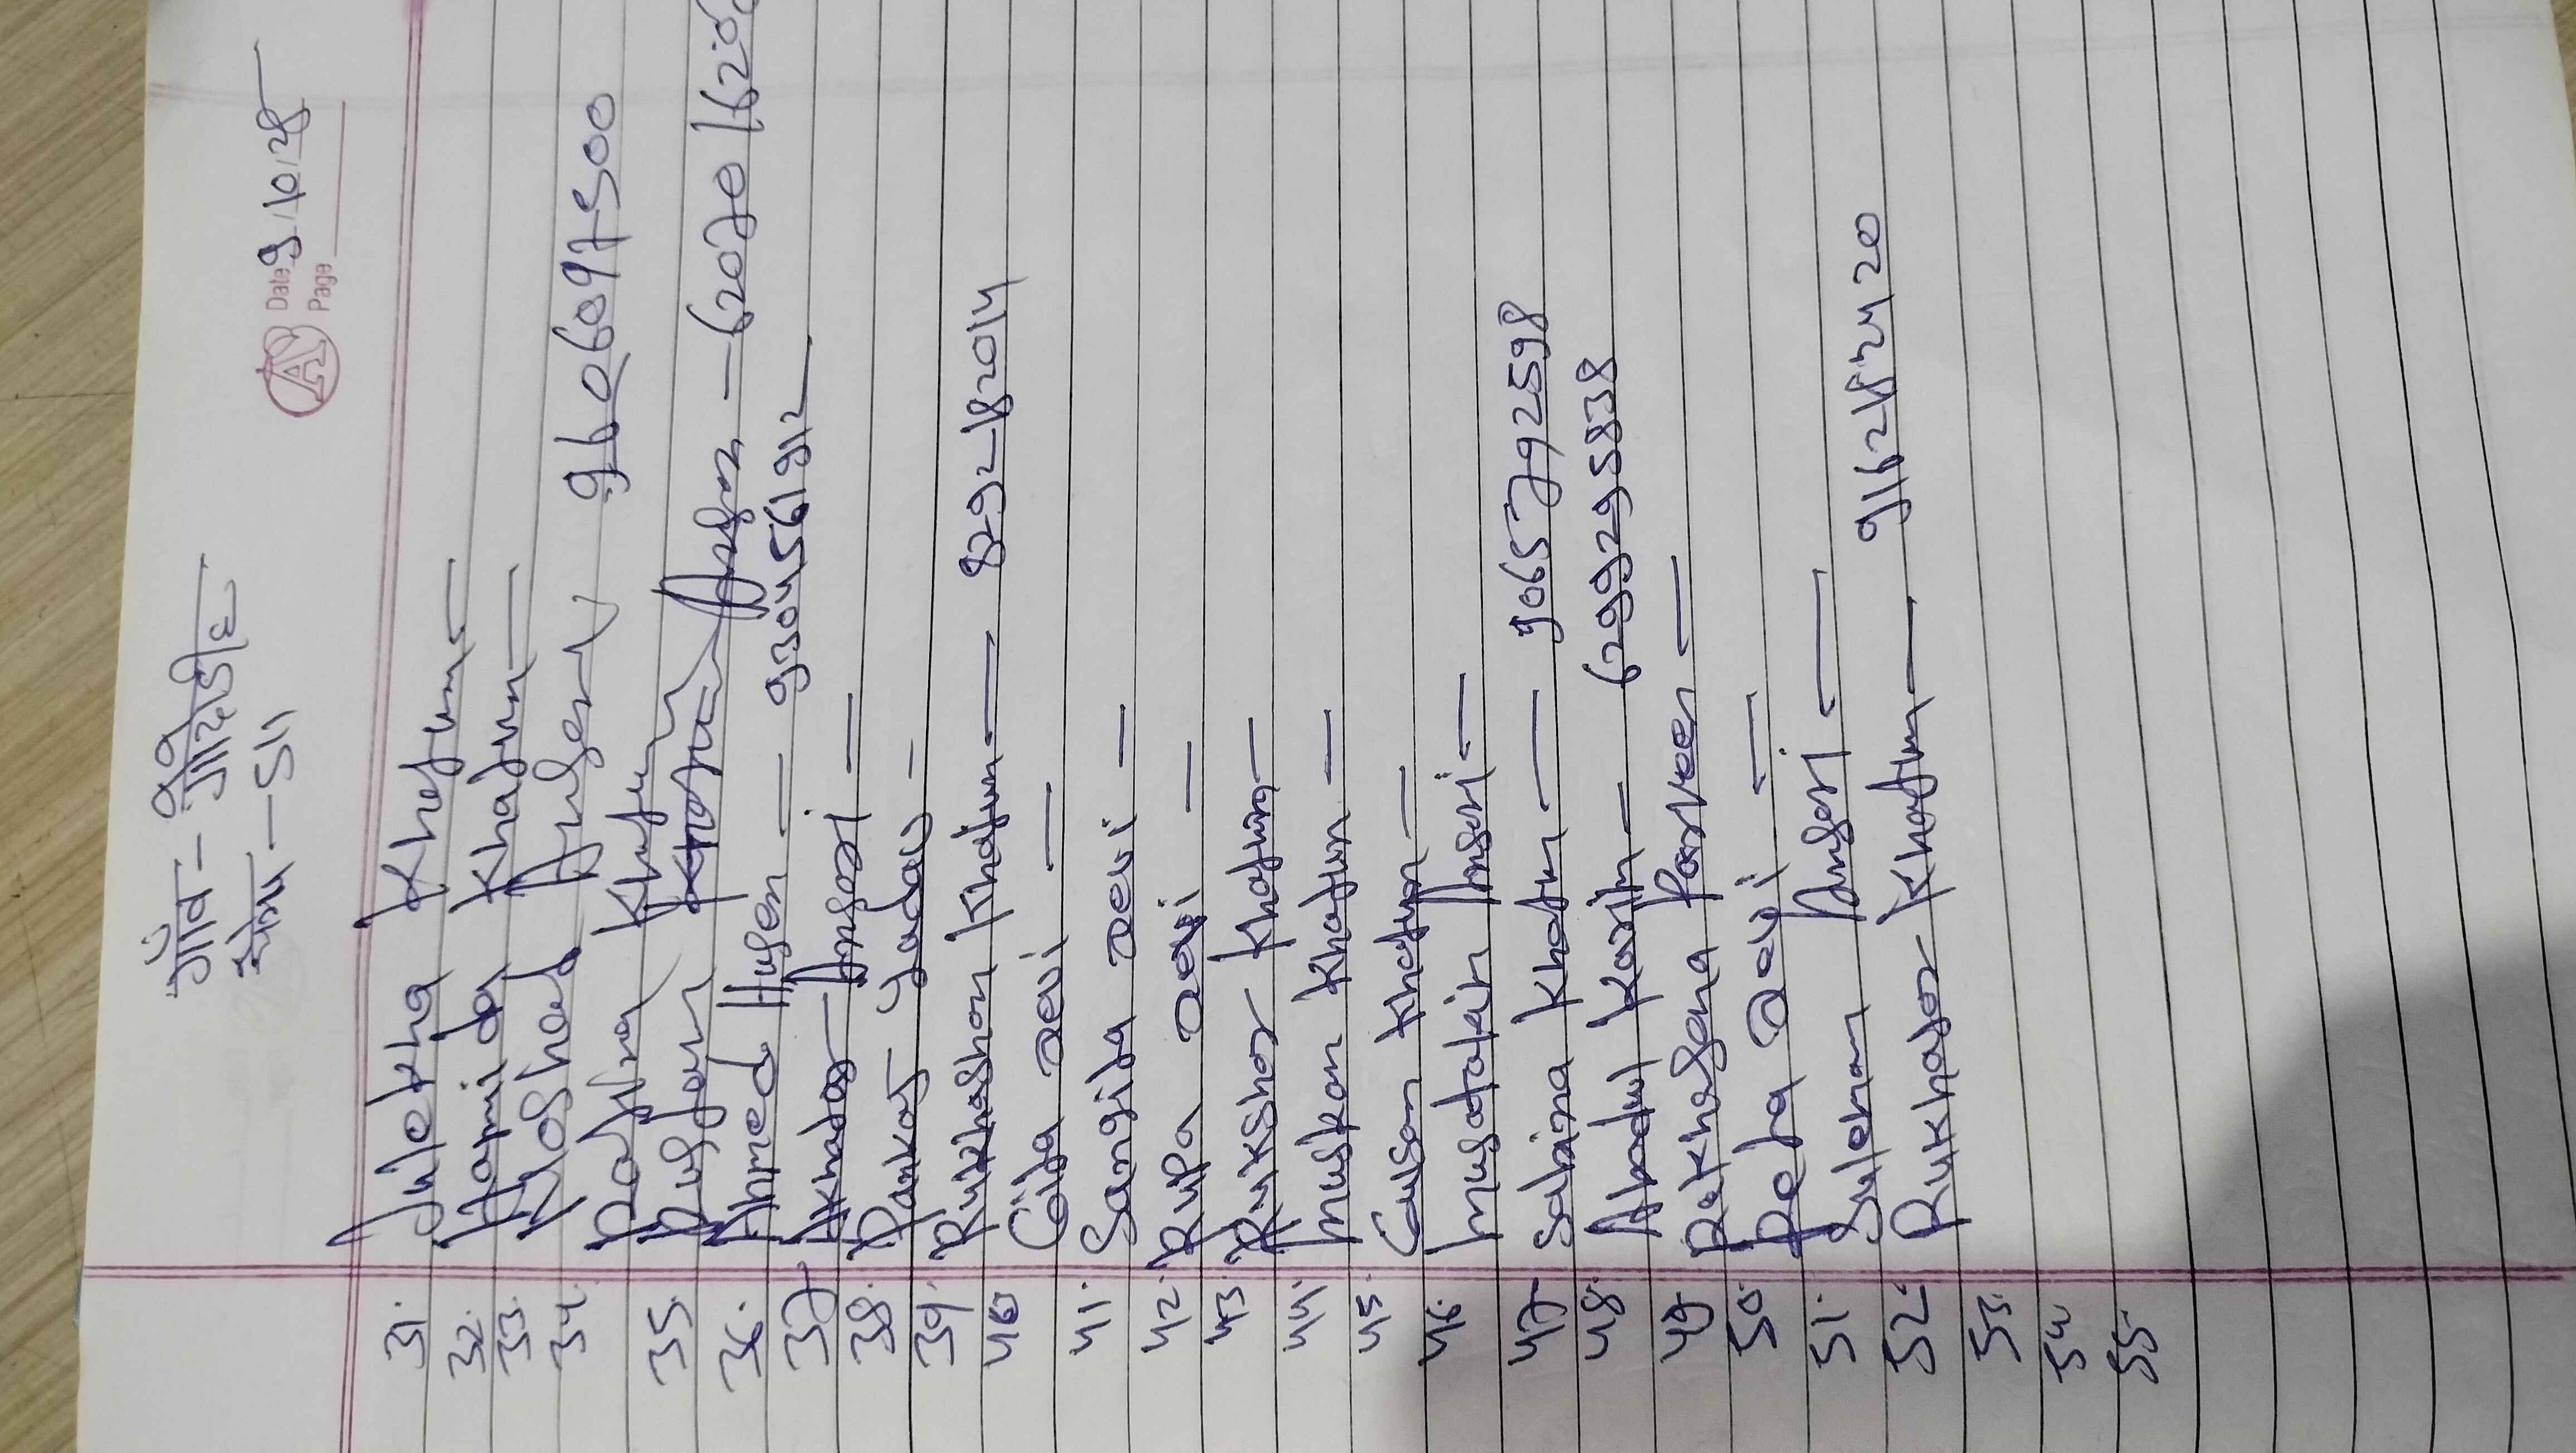 गाँव - गोदरडीह
Date 9/10/25
Page
31. Julekha Khatun
32. Hamida Khatun
33. Noshad Ansari 9606097500
34. Khatun
35. Khatun Ansari - 62070 162
36. Ahmed Husen - 9304561912
37 Akhatar Ansari -
38. Pankaj Yadav -
39. Rukhashan Khatun - 8292182014
40 Gita Devi -
41. Sangita Devi -
42. Rupa Devi -
43. Rukshar Khatun -
44. Muskan Khatun -
45. Gulsan Khatun -
46. Musatakin Ansari -
47 Sabina Khatun - 9065792598
48. Abdul Karim - 6299295838
49 Rukhasana Parveen -
50. Devi -
51. Suleman Ansari -
52. Rukhasar Khatun - 9162182420
53.
54
55.